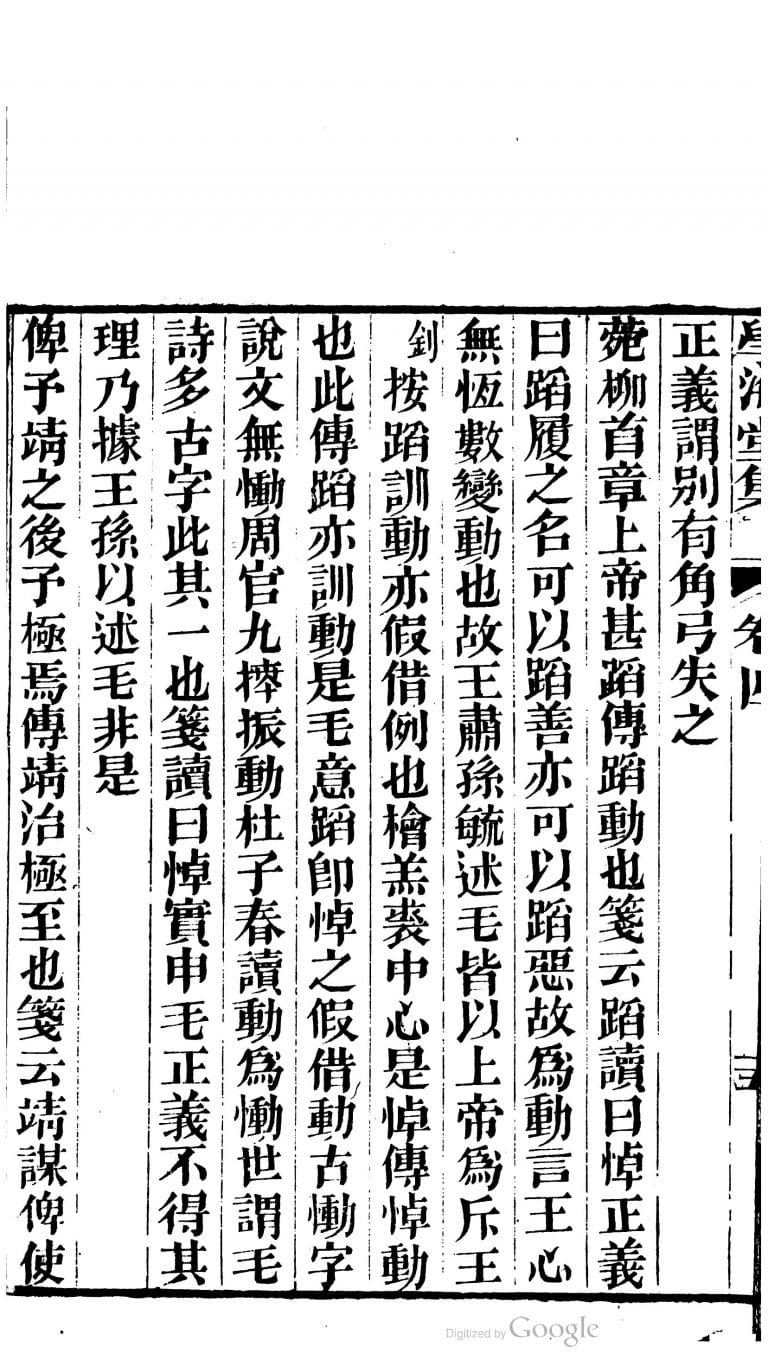 學海堂集 卷四
正義謂別有角弓失之
菀柳首章上帝甚蹈傳蹈動也箋云蹈讀曰悼正義
曰蹈履之名可以蹈善亦可以蹈惡故爲動言王心
無恆數變動也故王肅孫毓述毛皆以上帝爲斥王
釗按蹈訓動亦假借例也檜羔裘中心是悼傳悼動
也此傳蹈亦訓動是毛意蹈卽悼之假借動古慟字
說文無慟周官九㩓振動杜子春讀動爲慟世謂毛
詩多古字此其一也箋讀曰悼實申毛正義不得其
理乃據王孫以述毛非是
俾予靖之後予極焉傳靖治極至也箋云靖謀俾使
Digitized by Google